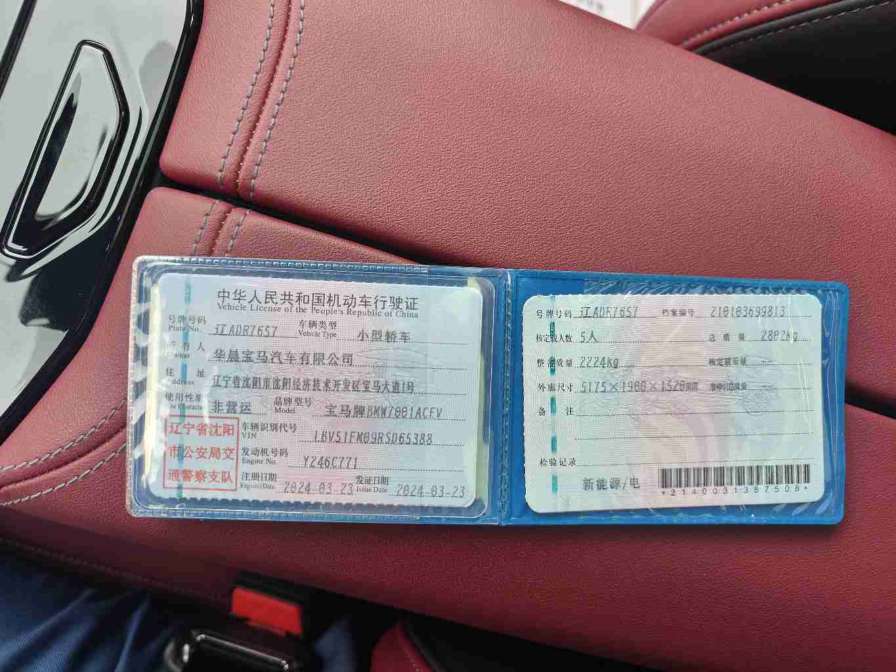 中华人民共和国机动车行驶证
Vehicle License of the People's Republic of China
号牌号码 辽ADR7657 车辆类型 小型轿车
Plate No. Vehicle Type
所有人 华晨宝马汽车有限公司
住址 辽宁省沈阳市沈阳经济技术开发区宝马大道1号
Address
使用性质 非营运 品牌型号 宝马牌BMW7001ACFV
Use Character Model
辽宁省沈阳
市公安局交
通警察支队
车辆识别代号 LBV51FM09RSD65388
VIN
发动机号码 Y246C771
Engine No.
注册日期 2024-03-23 发证日期 2024-03-23
Register Date Issue Date
号牌号码 辽ADR7657 档案编号 210103699813
核定载人数 5人 总质量 2802kg
整备质量 2224kg 核定载质量 --
外廓尺寸 5175×1900×1520mm 准牵引总质量 --
备注
检验记录
新能源/电
*2140031387508*